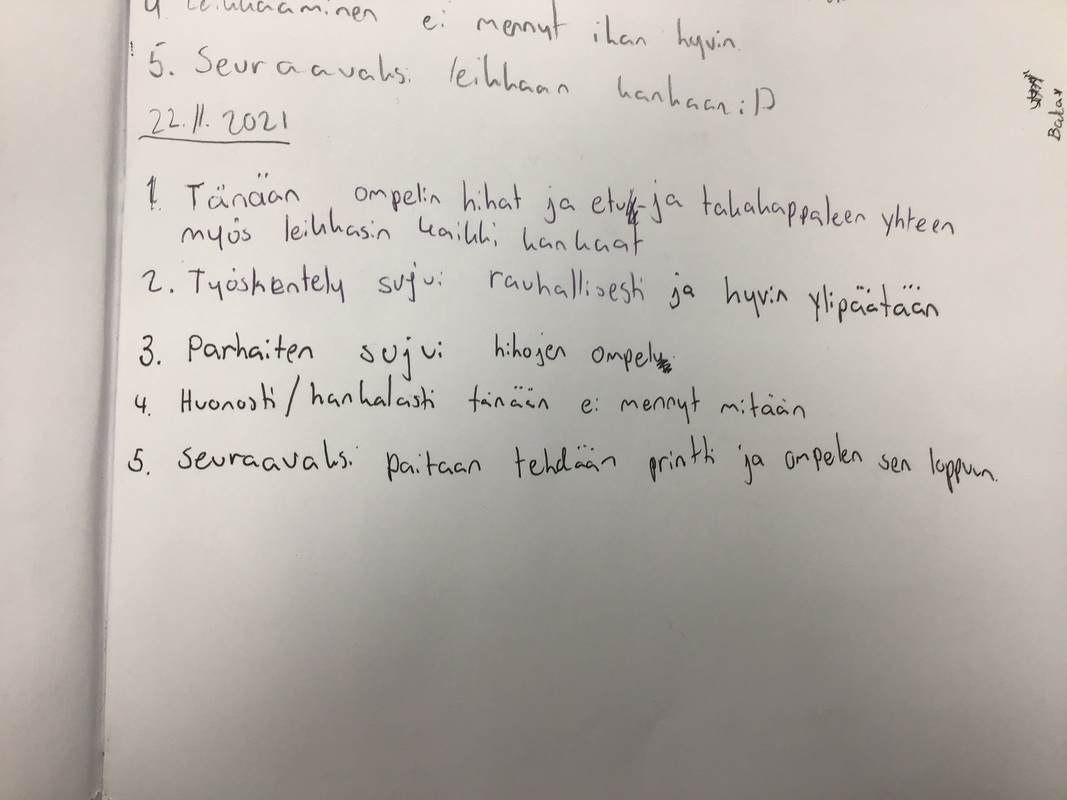 4 Leikkaaminen ei mennyt ihan hyvin
5. Seuraavaksi leikkaan kankaan :D
22.11.2021
1. Tänään ompelin hihat ja etu- ja takakappaleen yhteen
myös leikkasin kaikki kankaat
2. Työskentely sujui rauhallisesti ja hyvin ylipäätään
3. Parhaiten sujui hihojen ompelu
4. Huonosti/hankalasti tänään ei mennyt mitään
5. seuraavaksi paitaan tehdään printti ja ompelen sen loppuun.